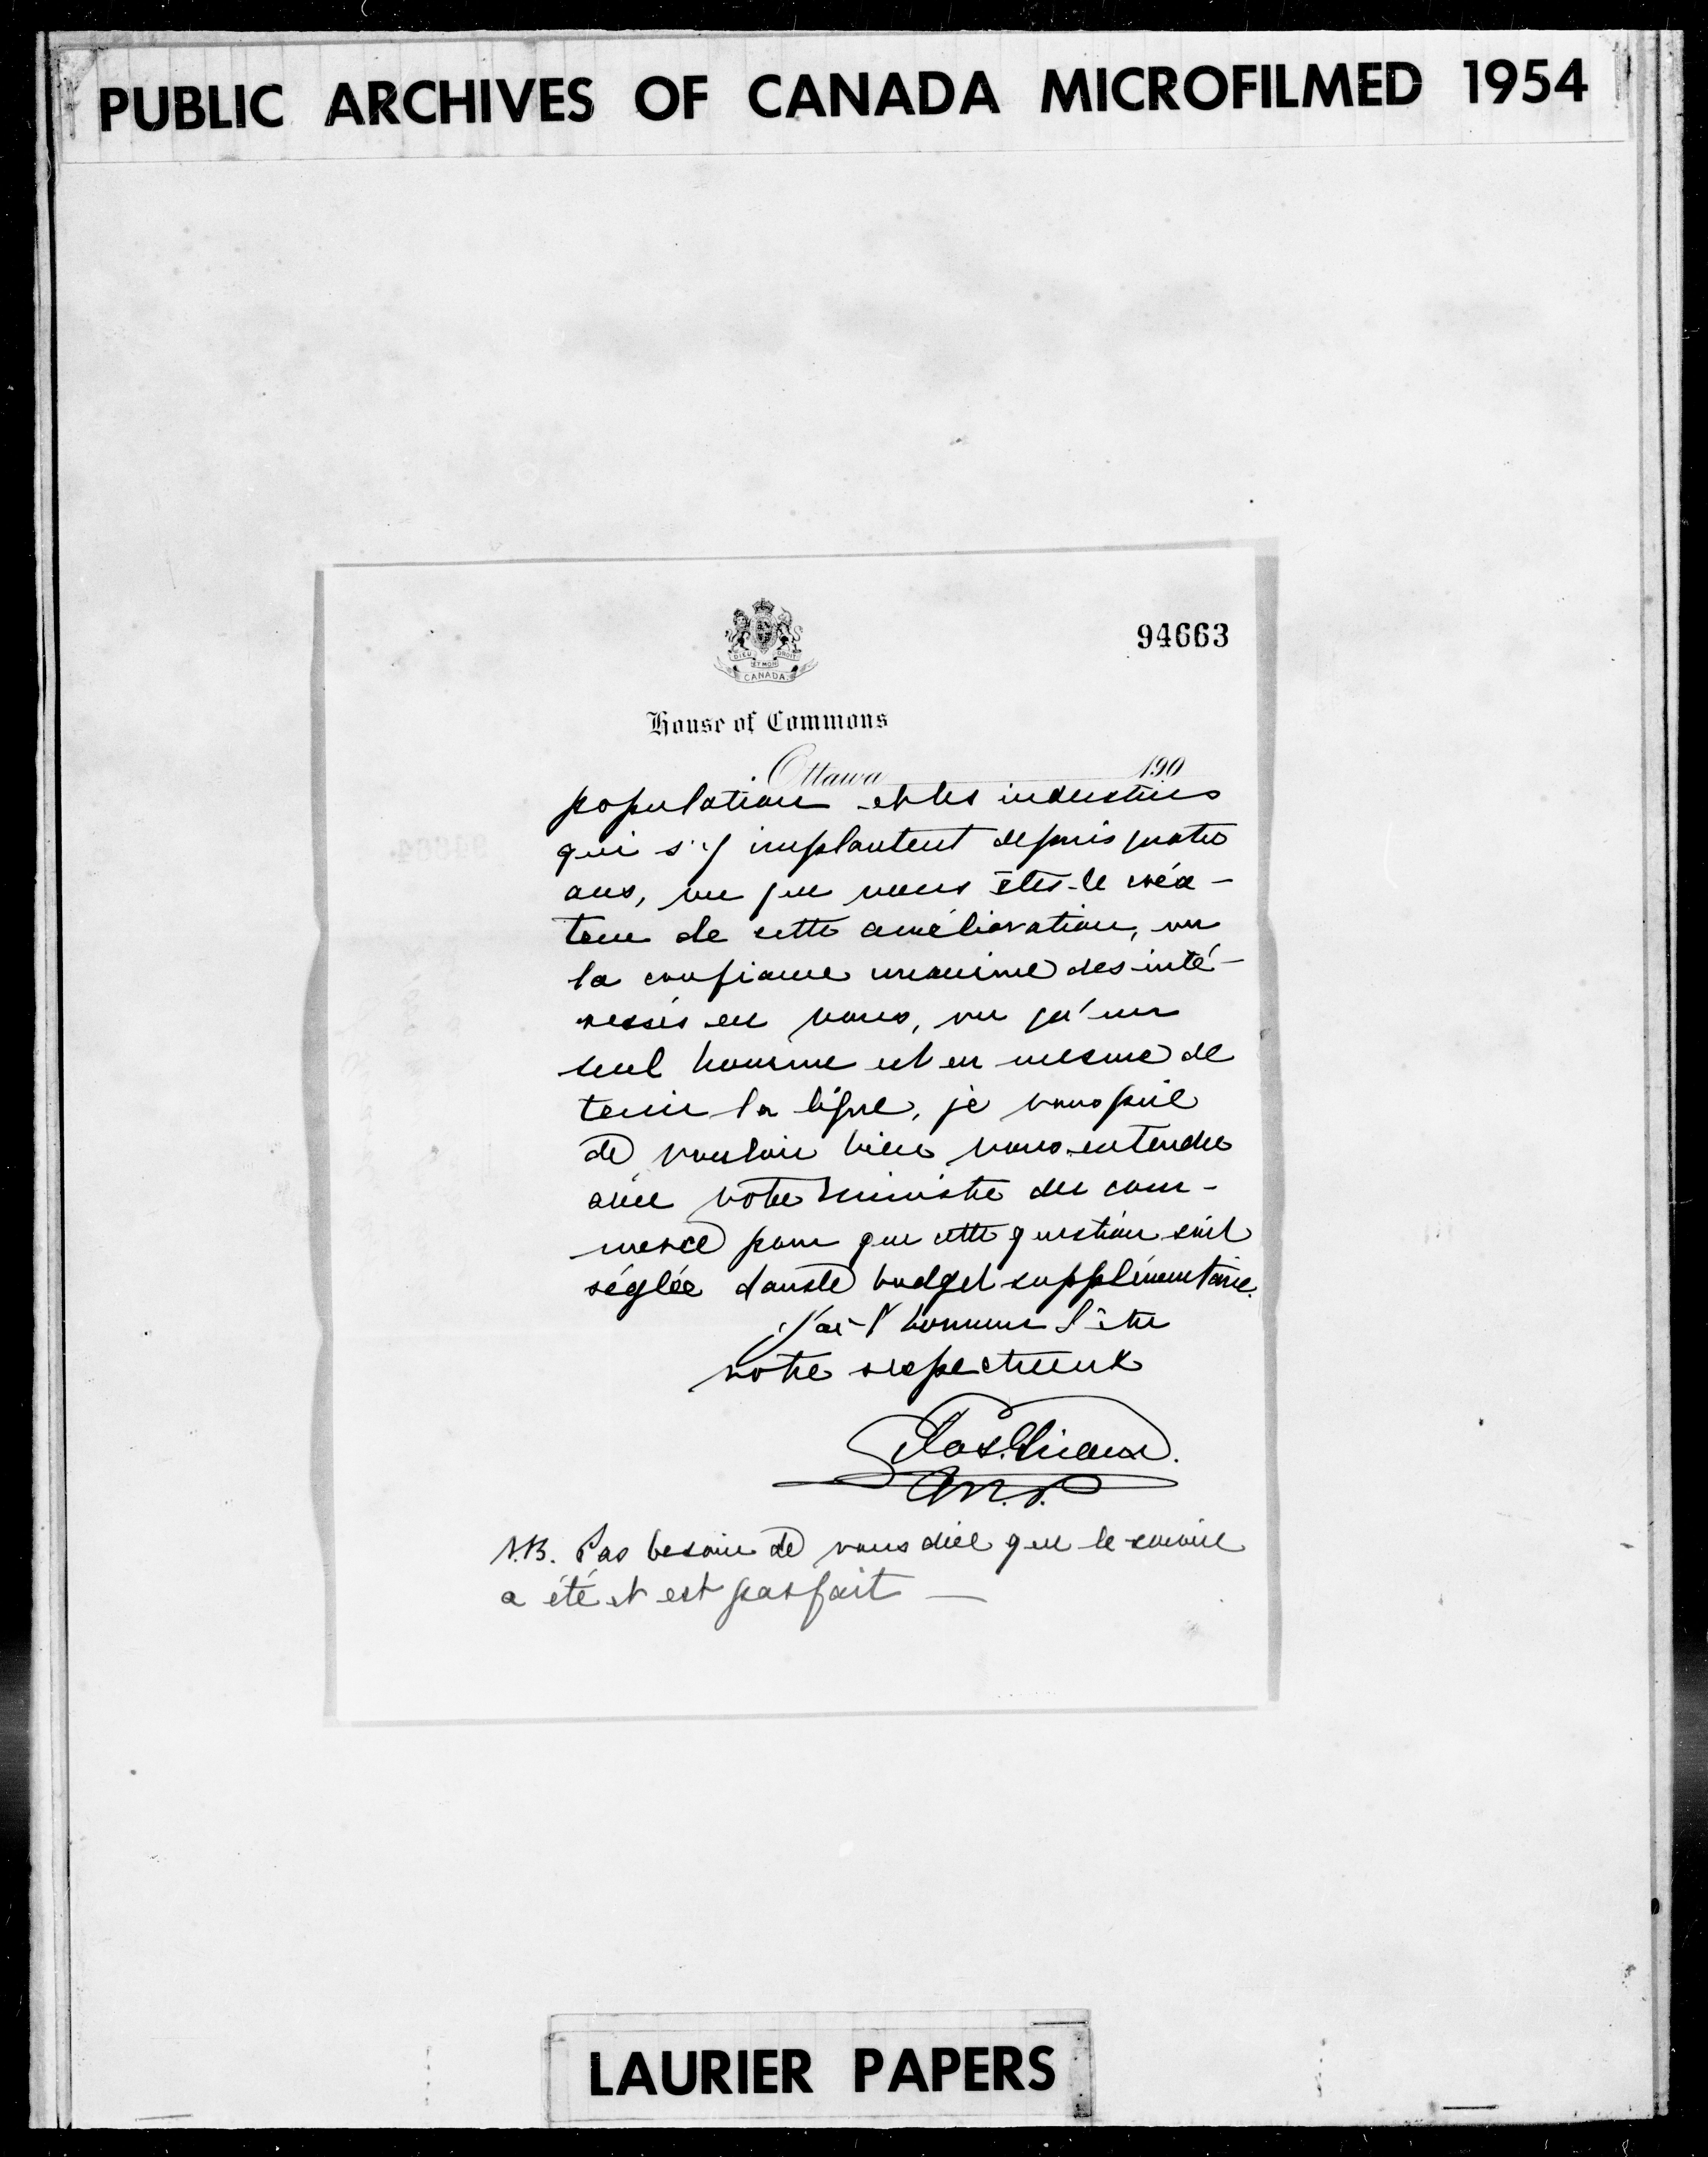 PUBLIC ARCHIVES OF CANADA MICROFILMED 1954
DIEU ET MON DROIT
CANADA
94663
House of Commons
Ottawa 190
population et les industries
qui s'y implantent depuis quatre
ans, vu que vous êtes le créa-
teur de cette amélioration, vu
la confiance unanime des inté-
ressés en vous, vu qu'un
seul homme est en mesure de
tenir la ligne, je vous prie
de vouloir bien vous entendre
avec votre ministre du com-
merce pour que cette question soit
réglée dans le budget supplémentaire.
J'ai l'honneur d'être
votre respectueux
M.P.
N.B. Pas besoin de vous dire que le service
a été et est parfait —
LAURIER PAPERS